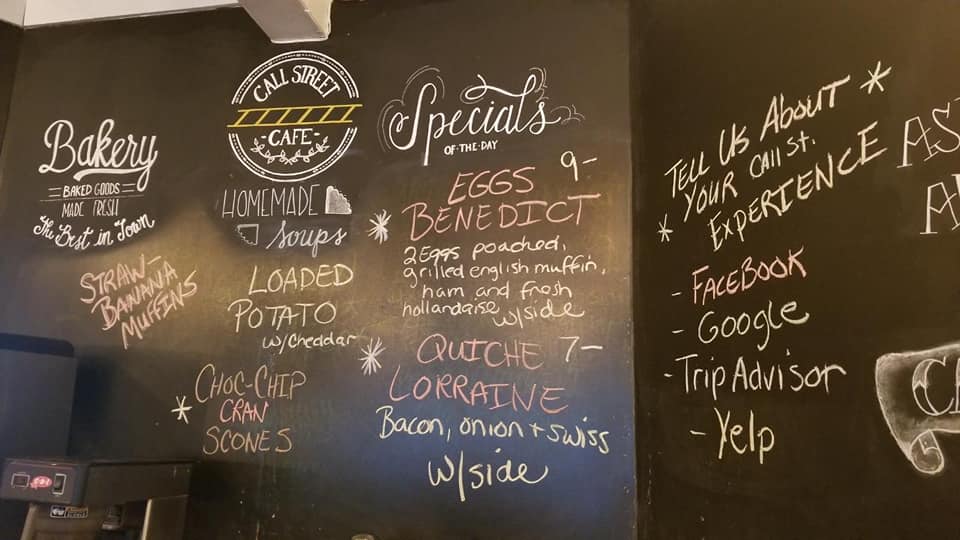 Bakery
BAKED GOODS
MADE FRESH
The Best in Town
STRAW-
BANANA
MUFFINS
CALL STREET
-CAFE-
HOMEMADE
Soups
LOADED
POTATO
w/cheddar
* CHOC-CHIP
CRAN
SCONES
Specials
OF THE DAY
* EGGS 9-
BENEDICT
2 Eggs poached,
grilled english muffin,
ham and fresh
hollandaise
w/side
* QUICHE 7-
LORRAINE
Bacon, onion + swiss
w/side
TELL US ABOUT *
* YOUR CALL ST.
EXPERIENCE
- FACEBOOK
- Google
- TripAdvisor
- Yelp
AS
A
C